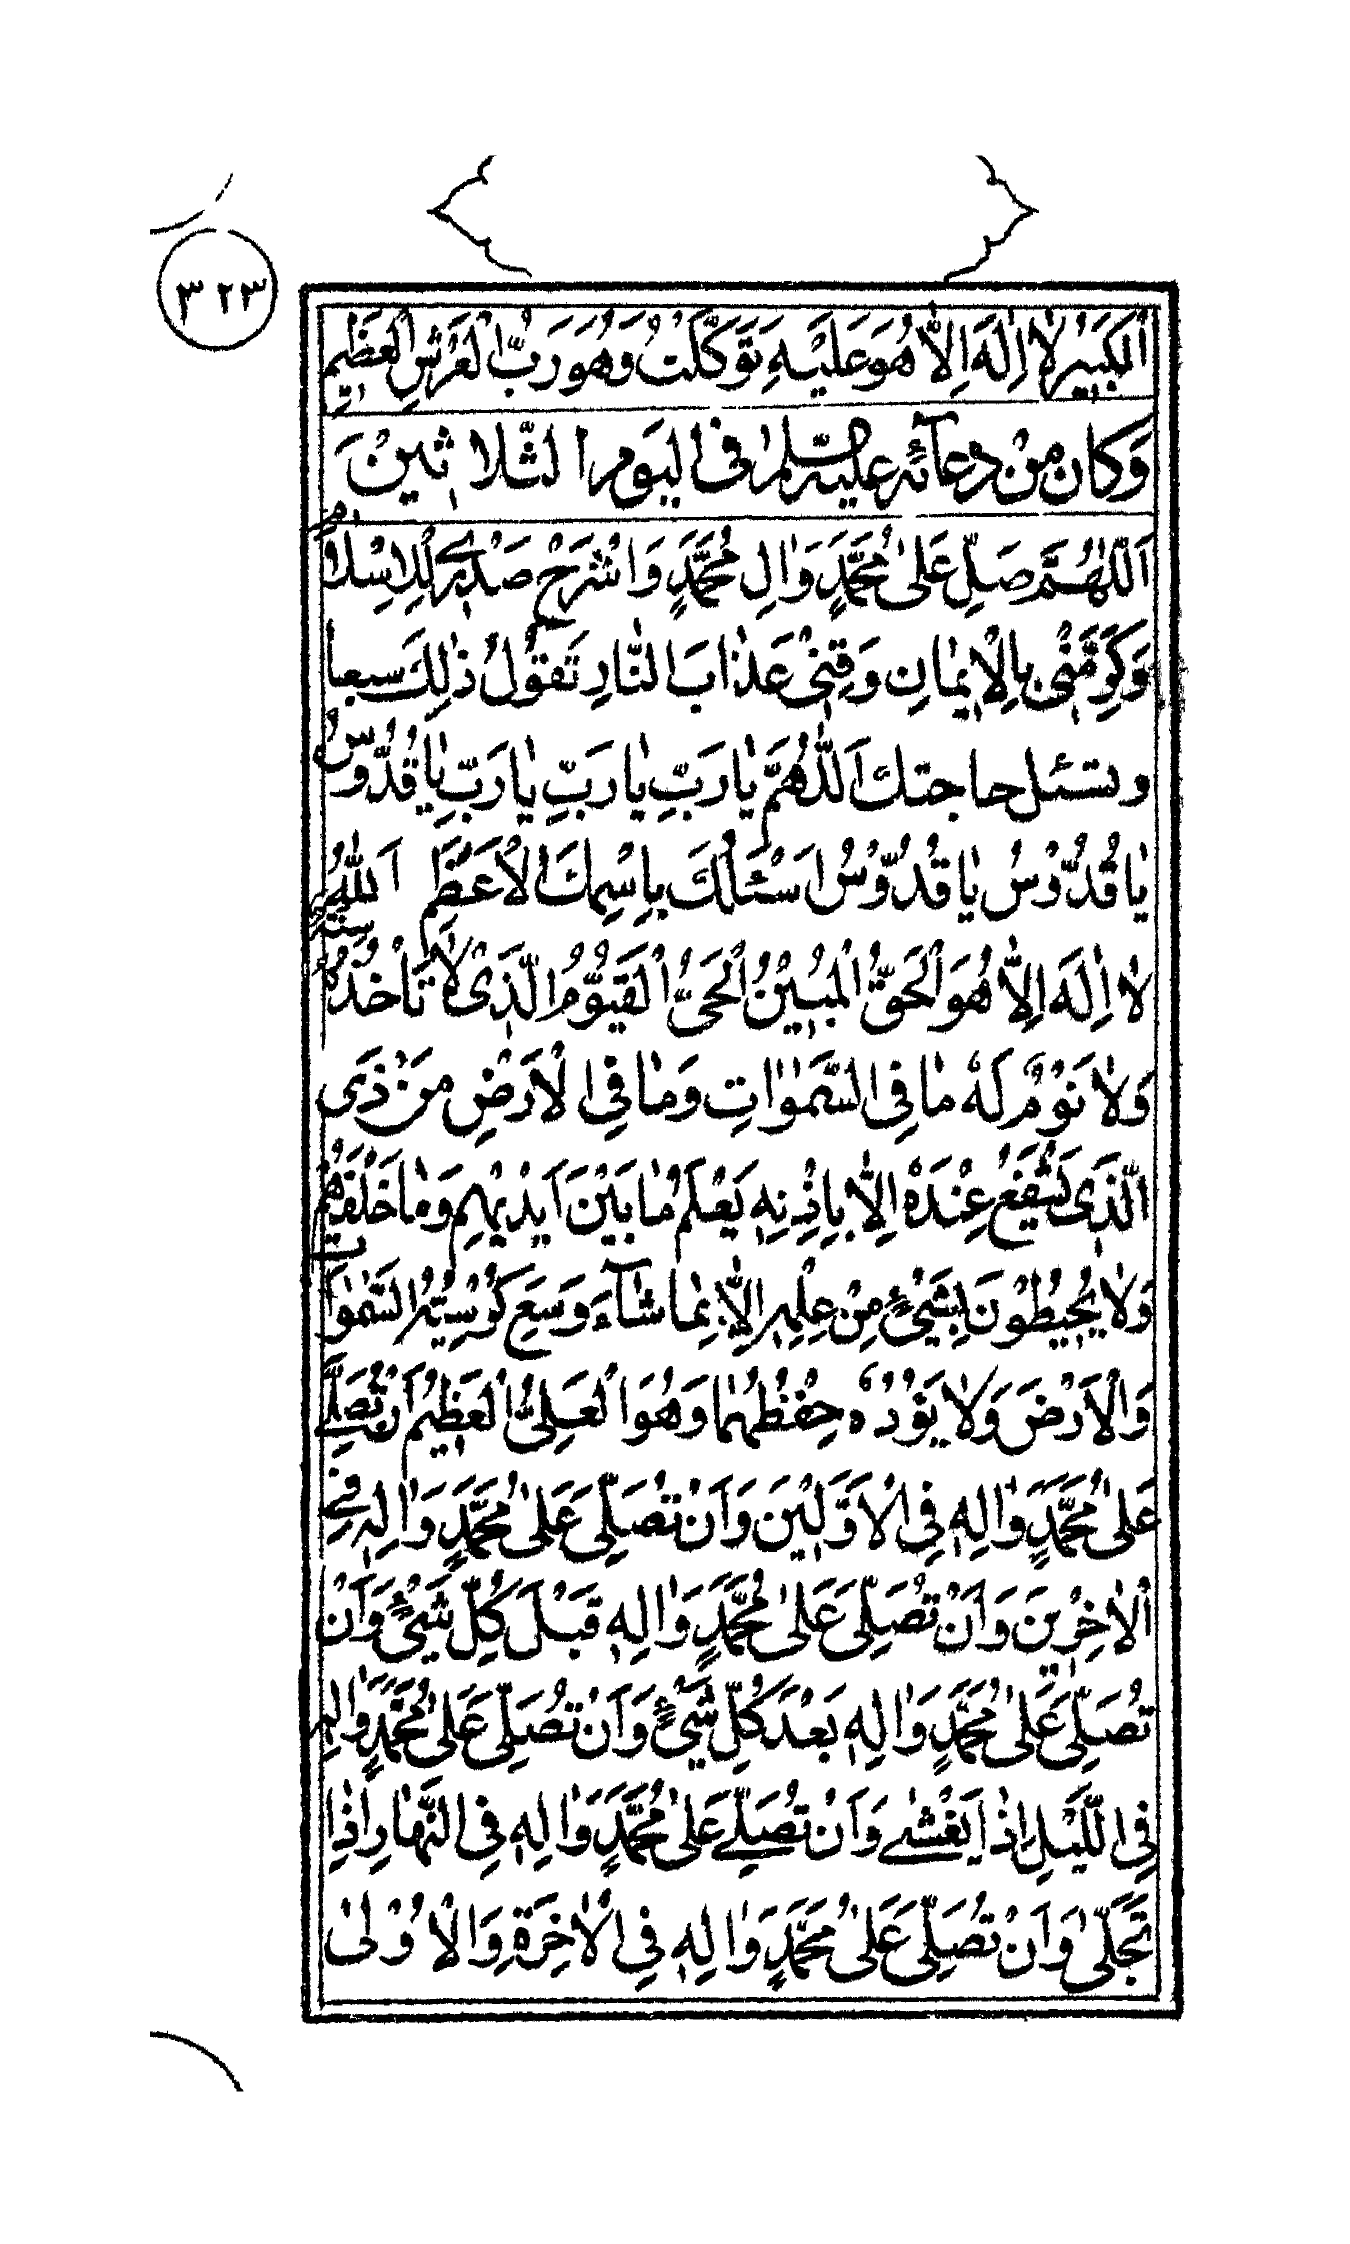 ٣٢٣
اَلْكَبِيرُ لٰا اِلٰهَ اِلاّٰ هُوَ عَلَيْهِ تَوَكَّلْتُ وَهُوَ رَبُّ الْعَرْشِ الْعَظِيمِ
وَكانَ مِنْ دُعآئِهِ عَلَيْهِ السَّلٰمُ فِى الْيَومِ الثَّلاثينَ
اَللّٰهُمَّ صَلِّ عَلىٰ مُحَمَّدٍ وَاٰلِ مُحَمَّدٍ وَاشْرَحْ صَدْرى لِلْاِسْلٰامِ
وَكَرِّمْنِى بِالْاِيمٰانِ وَقِنِى عَذٰابَ النّٰارِ تَقُولُ ذٰلِكَ سبعا
وتسئل حاجتك اَللّٰهُمَّ يٰا رَبِّ يٰا رَبِّ يٰا رَبِّ يٰا قُدُّوسُ
يٰا قُدُّوسُ يٰا قُدُّوسُ اَسْئَلُكَ بِاسْمِكَ الْاَعْظَمِ اَللّٰهُ
لٰا اِلٰهَ اِلاّٰ هُوَ الْحَقُّ الْمُبِيْنُ الْحَىُّ الْقَيُّومُ الَّذِى لٰا تَأْخُذُهُ سِنَةٌ
وَلٰا نَوْمٌ لَهُ مٰا فِى السَّمٰوٰاتِ وَمٰا فِى الْاَرْضِ مَنْ ذَى
الَّذِى يَشْفَعُ عِنْدَهُ اِلاّٰ بِاِذْنِهِ يَعْلَمُ مٰا بَيْنَ اَيْدِيْهِمْ وَمٰا خَلْفَهُمْ
وَلٰا يُحِيطُونَ بِشَيْئٍ مِنْ عِلْمِهِ اِلاّٰ بِمٰا شٰآءَ وَسِعَ كُرْسِيُّهُ السَّمٰوٰاتِ
وَالْاَرْضَ وَلٰا يَؤُدُهُ حِفْظُهُمٰا وَهُوَ الْعَلِىُّ الْعَظِيمُ اَنْ تُصَلِّىَ
عَلىٰ مُحَمَّدٍ وَاٰلِهِ فِى الْاَوَّلِيْنَ وَاَنْ تُصَلِّىَ عَلىٰ مُحَمَّدٍ وَاٰلِهِ فِى
الْاٰخِرِيْنَ وَاَنْ تُصَلِّىَ عَلىٰ مُحَمَّدٍ وَاٰلِهِ قَبْلَ كُلِّ شَيْئٍ وَاَنْ
تُصَلِّىَ عَلىٰ مُحَمَّدٍ وَاٰلِهِ بَعْدَ كُلِّ شَيْئٍ وَاَنْ تُصَلِّىَ عَلىٰ مُحَمَّدٍ وَاٰلِهِ
فِى اللَّيْلِ اِذٰا يَغْشٰى وَاَنْ تُصَلِّىَ عَلىٰ مُحَمَّدٍ وَاٰلِهِ فِى النَّهٰارِ اِذٰا
تَجَلّىٰ وَاَنْ تُصَلِّىَ عَلىٰ مُحَمَّدٍ وَاٰلِهِ فِى الْاٰخِرَةِ وَالْاُوْلىٰ